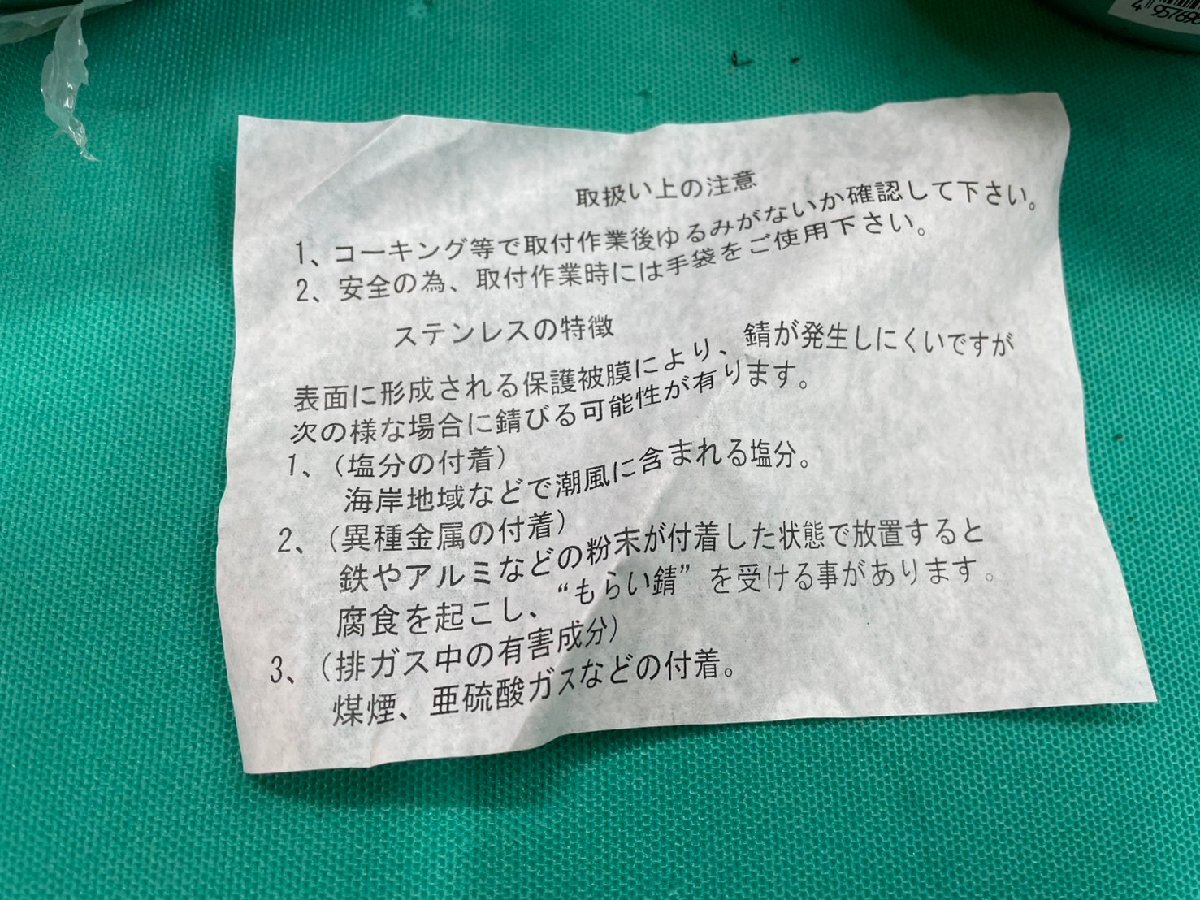 取扱い上の注意
1、コーキング等で取付作業後ゆるみがないか確認して下さい。
2、安全の為、取付作業時には手袋をご使用下さい。
ステンレスの特徴
表面に形成される保護被膜により、錆が発生しにくいですが
次の様な場合に錆びる可能性が有ります。
1、（塩分の付着）
海岸地域などで潮風に含まれる塩分。
2、（異種金属の付着）
鉄やアルミなどの粉末が付着した状態で放置すると
腐食を起こし、“もらい錆”を受ける事があります。
3、（排ガス中の有害成分）
煤煙、亜硫酸ガスなどの付着。